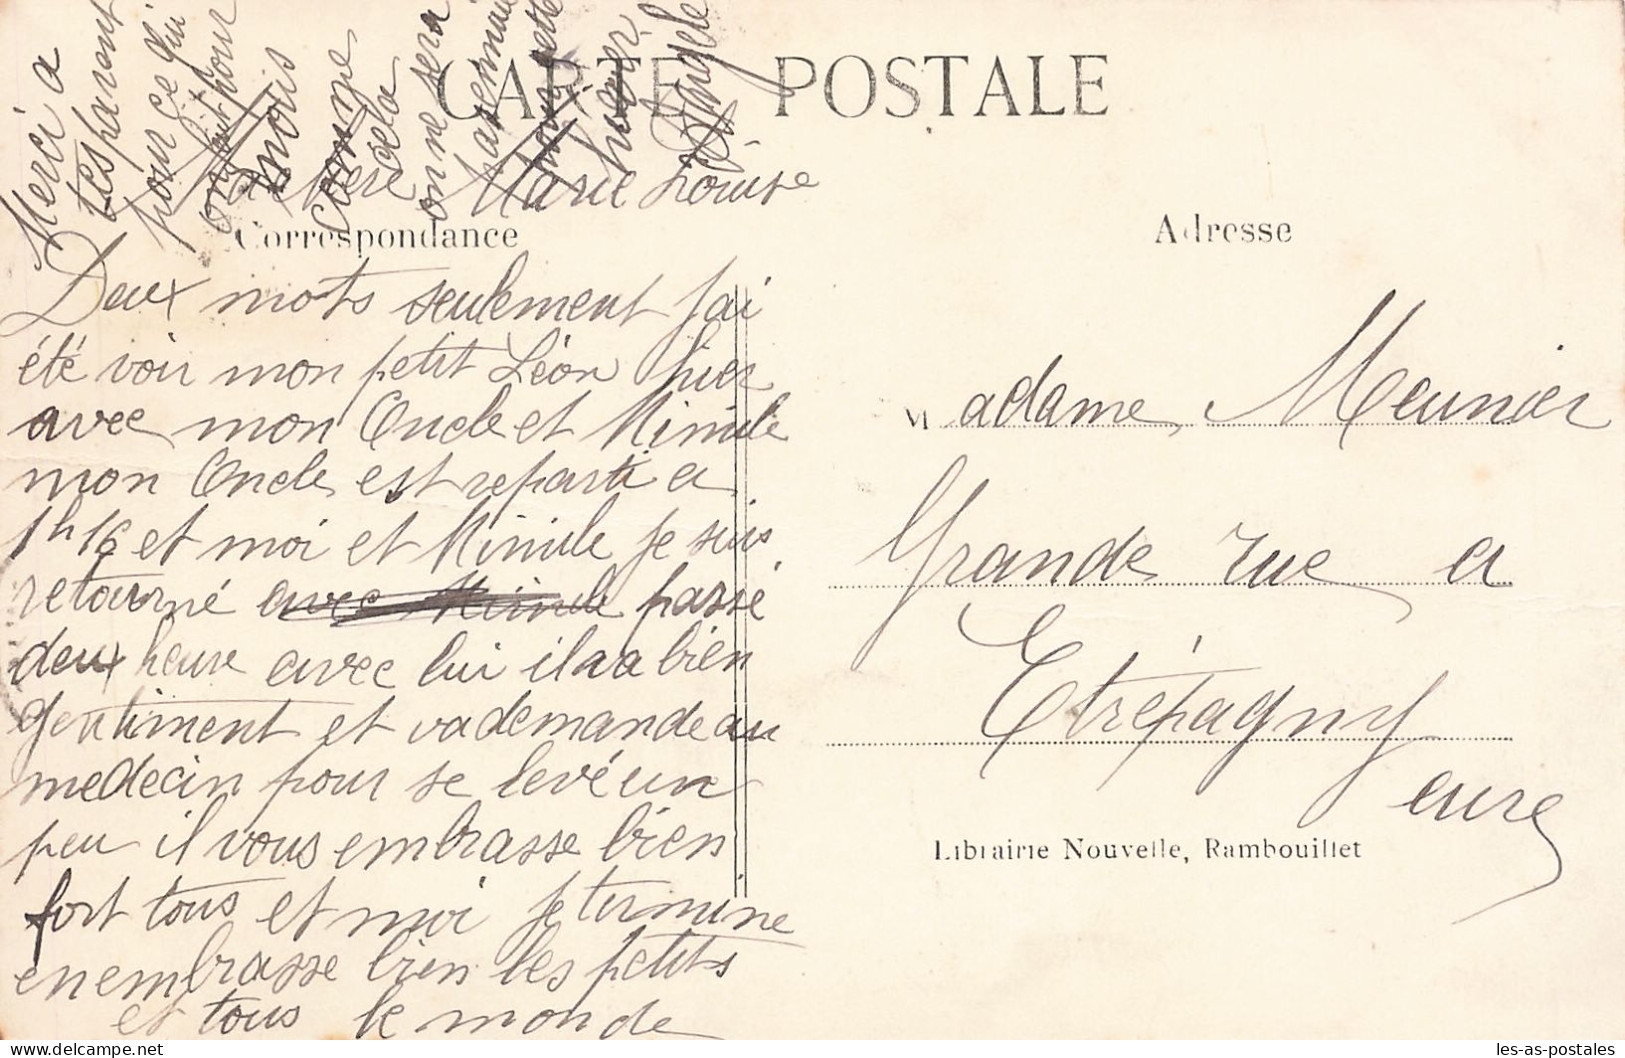 CARTE POSTALE
Chère Marie Louise
Correspondance
Deux mots seulement j'ai
été voir mon petit Léon hier
avec mon Oncle et Mimile
mon Oncle est reparti a
1h16 et moi et Mimile je suis
retourné avec Mimile passé
deux heure avec lui il va bien
gentiment et va demande au
medecin pour se levé un
peu il vous embrasse bien
fort tous et moi je termine
en embrasse bien les petits
et tous le monde
Merci a
tes parent
pour ce qui
ont fait pour
nous
comme
cela
on ne sera
pas
cette
hiver
Angele
Adresse
Madame Meunier
Grande rue a
Etrépagny
eure
Librairie Nouvelle, Rambouillet
les-as-postales
www.delcampe.net